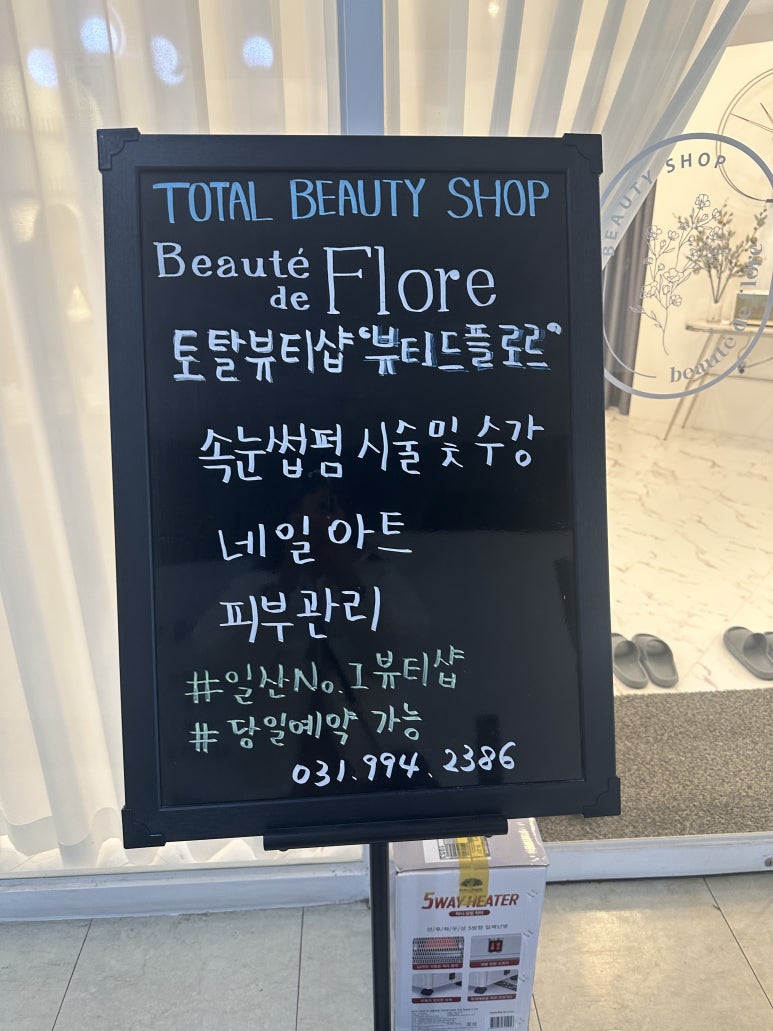 TOTAL BEAUTY SHOP
Beauté
de Flore
토탈뷰티샵 "뷰티드플로르"
속눈썹펌 시술 및 수강
네일아트
피부관리
#일산No.1뷰티샵
#당일예약 가능
031.994.2386
BEAUTY SHOP
beauté de flore
5WAY HEATER